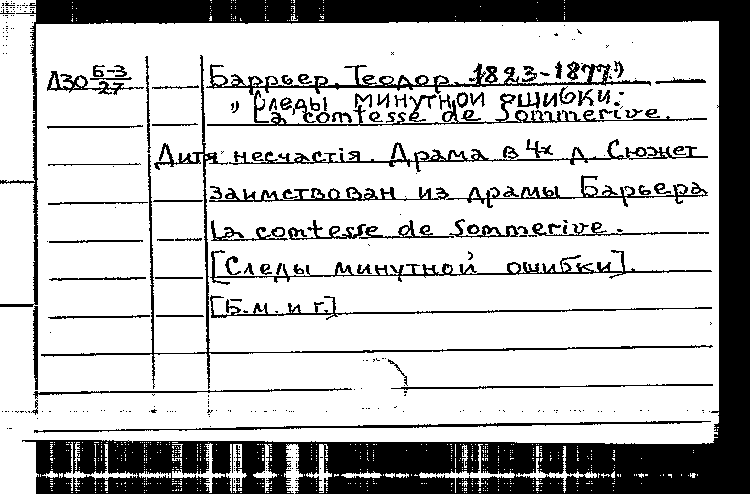 Д30 Б-3/27 Баррьер, Теодор. 1823-1877)
„ Следы минутной ошибки.
La comtesse de Sommerive.
Дитя несчастія. Драма в 4х д. Сюжет
заимствован из драмы Барьера
La comtesse de Sommerive.
[Следы минутной ошибки].
[Б.м. и г.]